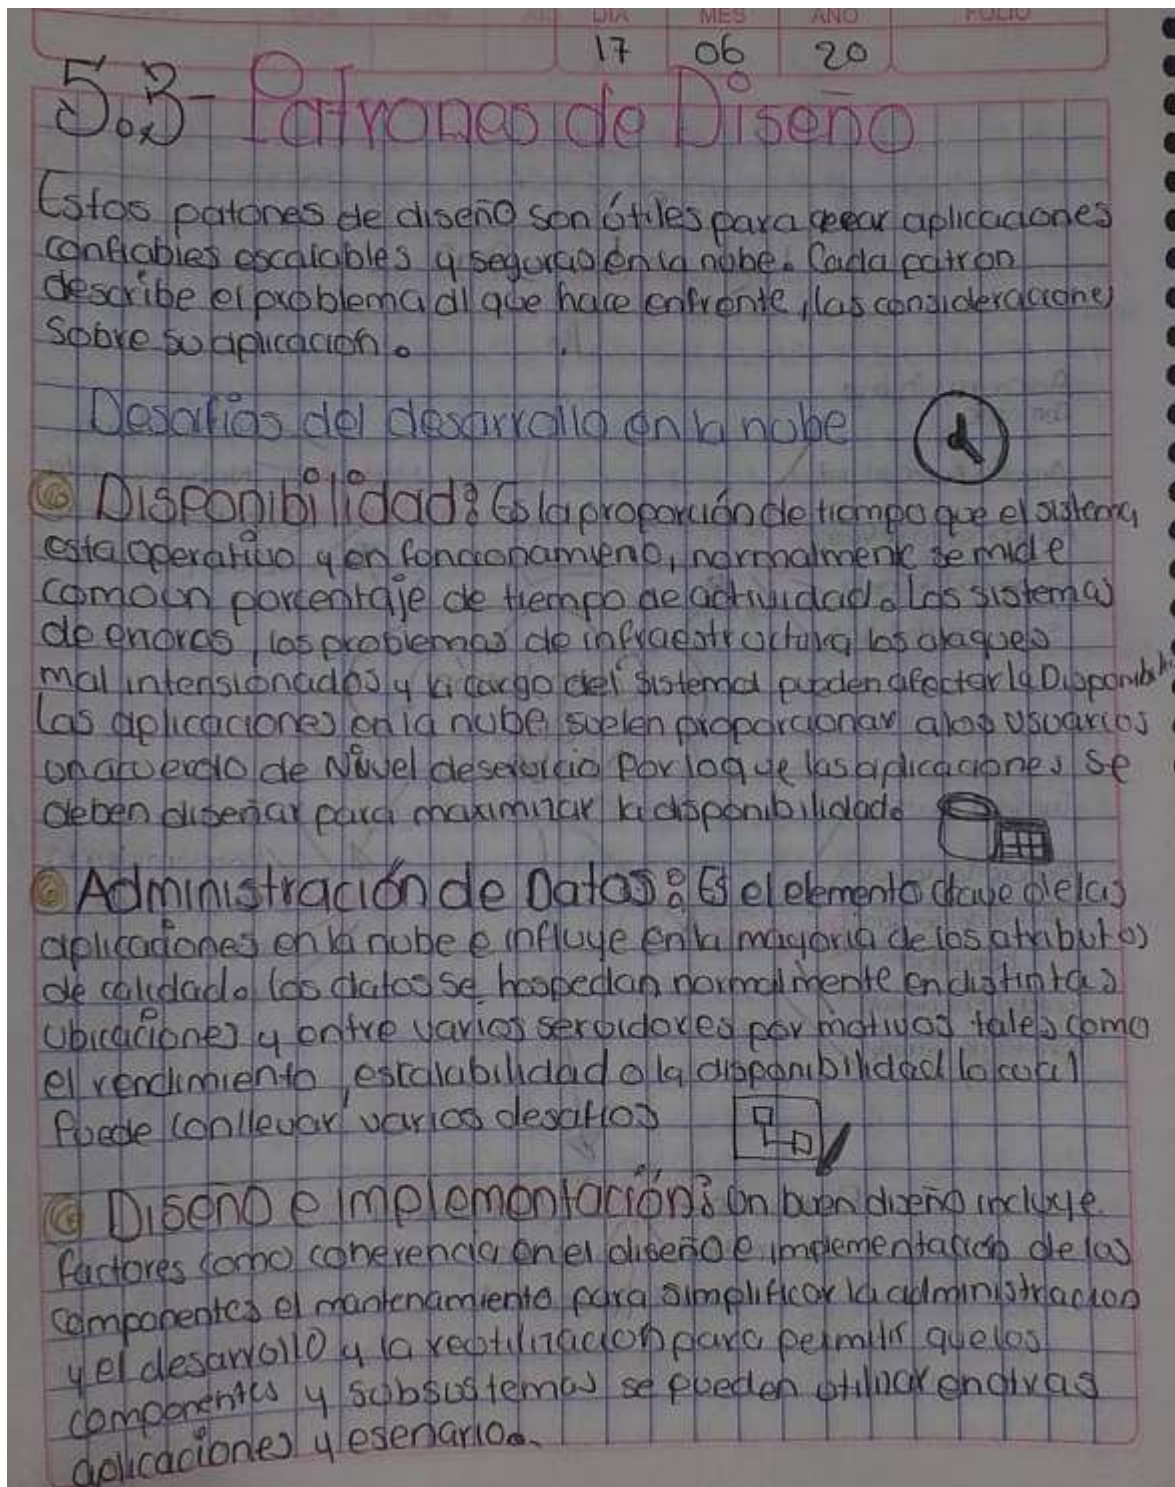 DIA MES AÑO FOLIO
17 06 20
5.3- Patrones de Diseño
Estos patones de diseño son útiles para crear aplicaciones
confiables escalables y seguras en la nube. Cada patron
describe el problema al que hace enfronte, las consideraciones
sobre su aplicación.
Desafios del desarrollo en la nube
Disponibilidad: Es la proporción de tiempo que el sistema
esta operativo y en funcionamieno, normalmente se mide
como un porcentaje de tiempo de actividad. Los sistemas
de errores, los problemas de infraestructura los ataques
mal intensionados y la cargo del sistema pueden afectar la Disponib
Las aplicaciones en la nube suelen proporcionar a los usuarios
un acuerdo de Nivel de servicio Por lo que las aplicaciones se
deben diseñar para maximizar la disponibilidad.
Administración de Datos: Es el elemento clave de las
aplicaciones en la nube e influye en la mayoria de los atributos
de calidad. Los datos se hospedan normalmente en distintas
ubicaciones y entre varios servidores por motivos tales como
el rendimiento, escalabilidad o la disponibilidad lo cual
Puede conllevar varios desafios
Diseño e implementación: Un buen diseño incluye
factores como coherencia en el diseño e implementación de los
componentes el mantenamiento para simplificar la administracion
y el desarrollo y la reutilizacion para permitir que los
componentes y subsistemas se pueden utilizar en otras
aplicaciones y esenario.